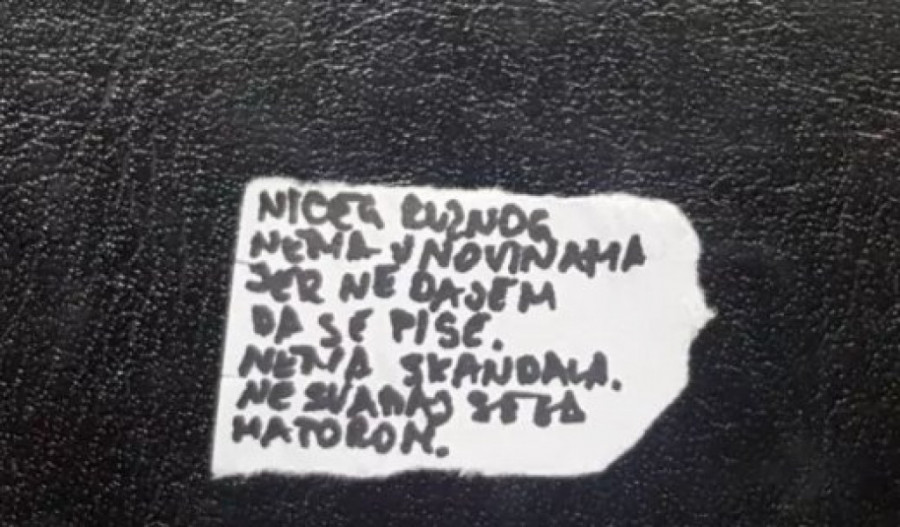 NIČEG RUŽNOG
NEMA U NOVINAMA
JER NE DAJEM
DA SE PIŠE.
NEMA SKANDALA.
NE SVAĐAJ
MATOROM.